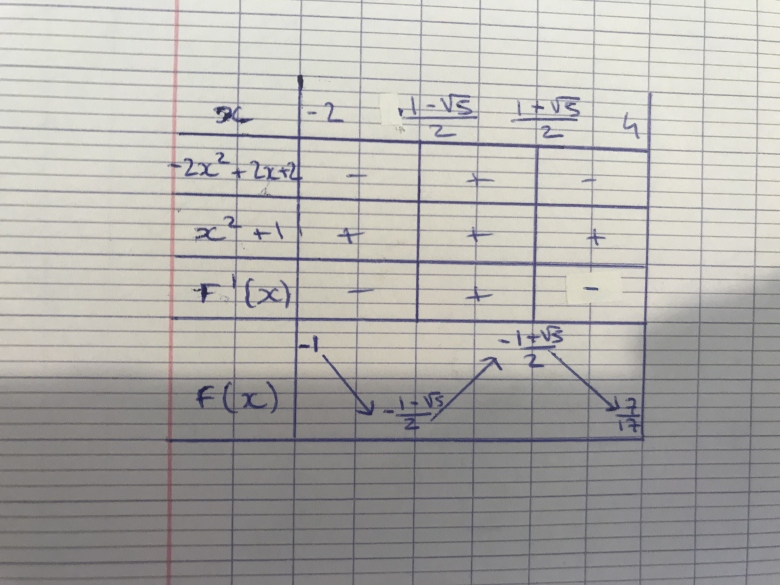 x -2 1-√5/2 1+√5/2 4
-2x² + 2x+2 - + -
x² + 1 + + +
F'(x) - + -
-1 -1+√5/2
F(x) -1-√5/2 7/17